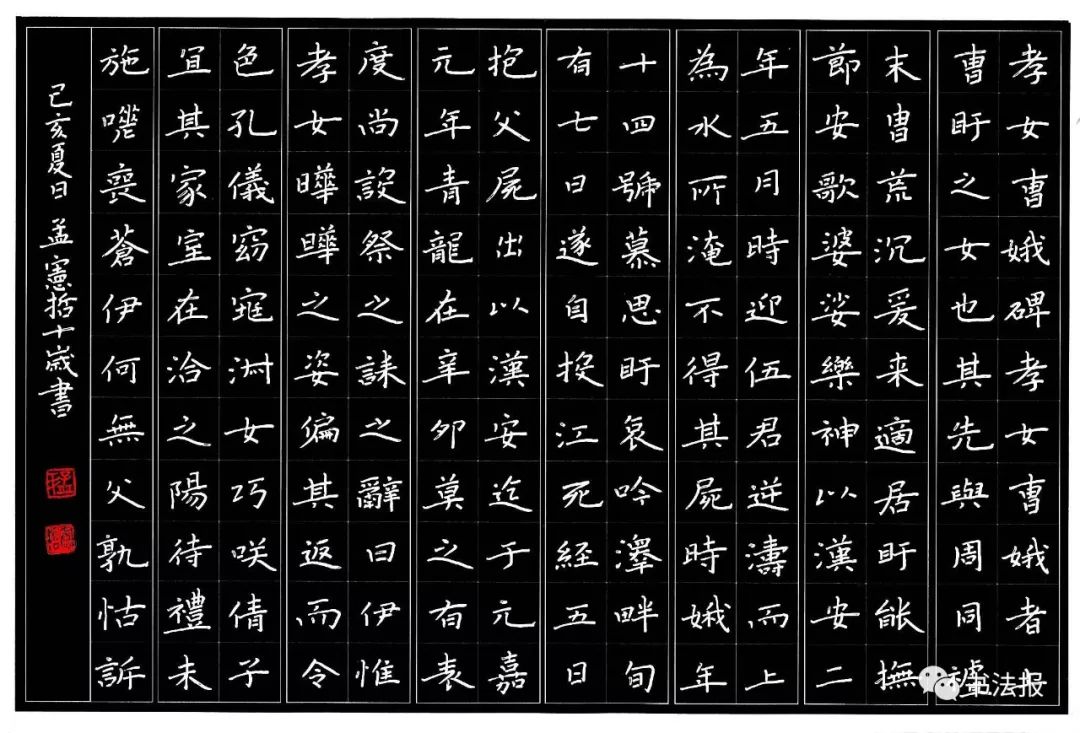 孝女曹娥碑孝女曹娥者
曹盱之女也其先與周同
末胄荒沉爰来適居盱能撫
節安歌婆娑樂神以漢安二
年五月時迎伍君逆濤而上
為水所淹不得其屍時娥年
十四號慕思盱哀吟澤畔旬
有七日遂自投江死経五日
抱父屍出以漢安迄于元嘉
元年青龍在辛卯莫之有表
度尚設祭之誄之辭曰伊惟
孝女曄曄之姿偏其返而令
色孔儀窈窕淑女巧咲倩子
宜其家室在洽之陽待禮未
施嗟喪蒼伊何無父孰怙訴
己亥夏日 孟憲哲十歲書
书法报